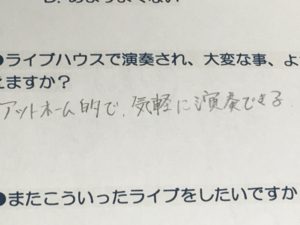 D. あまりよくない
●ライブハウスで演奏され、大変な事、よ
えますか？
アットホーム的で、気軽に演奏できる
●またこういったライブをしたいですか